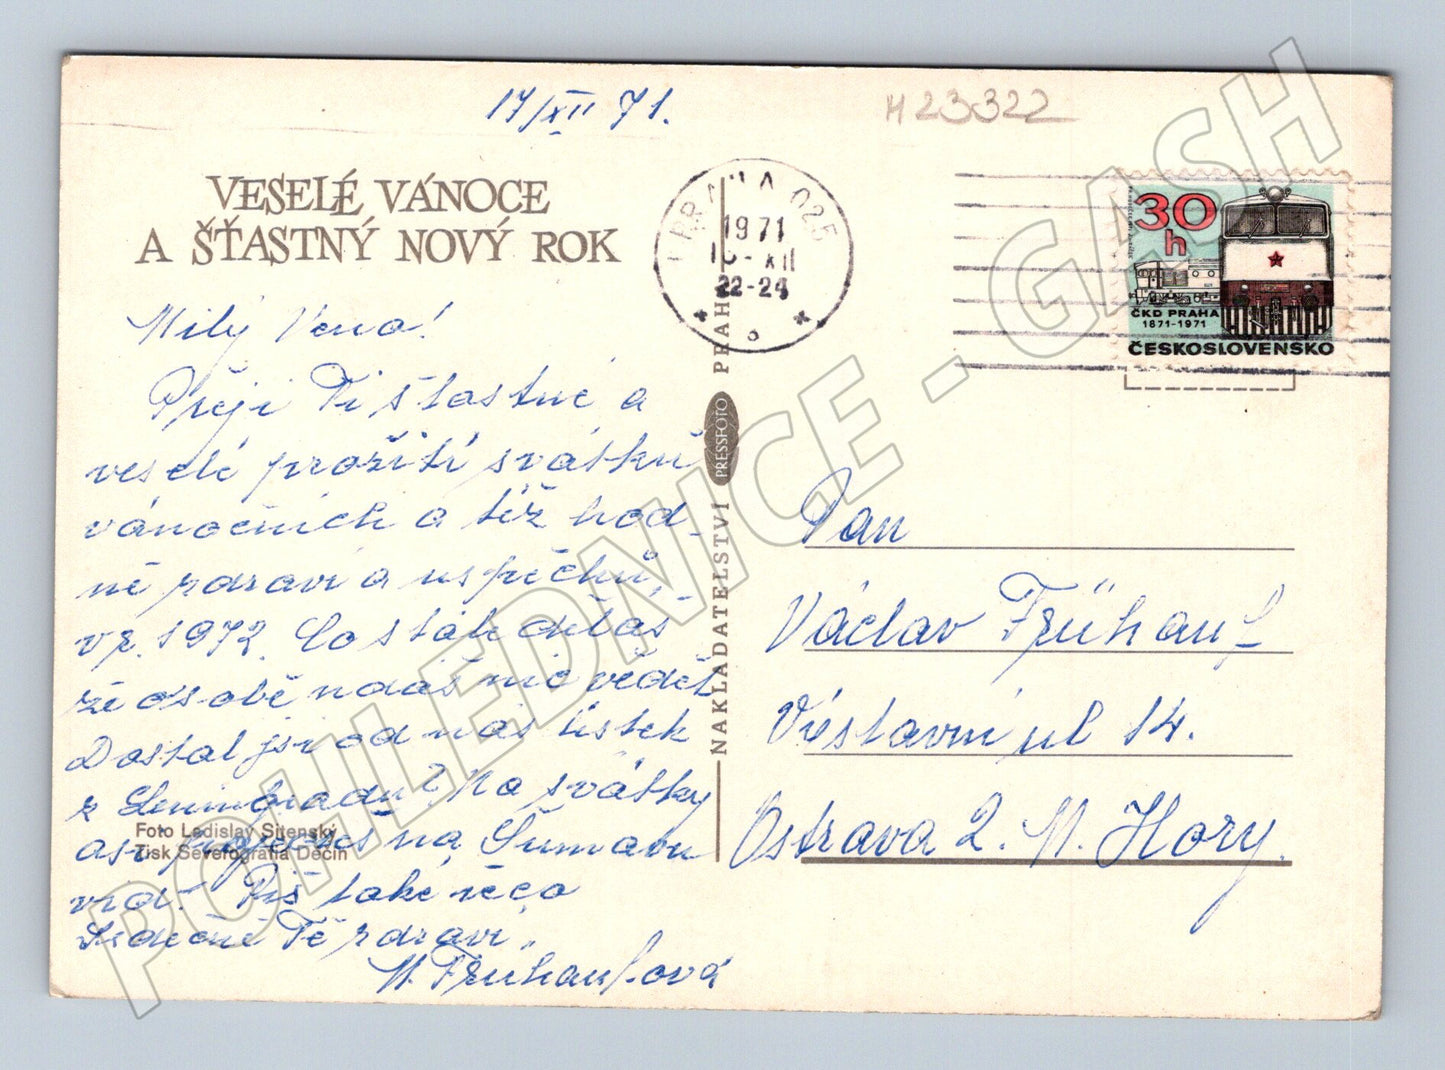 17/XII 71.
H 23322
VESELÉ VÁNOCE
A ŠŤASTNÝ NOVÝ ROK
PRAHA 025
1971
XII
22-24
30
h
ČKD PRAHA
1871-1971
ČESKOSLOVENSKO
Milý Veno!
Přeji Ti šťastné a
veselé prožití svátků
vánočních a též hod-
ně zdraví a uspěchů,
v r. 1972. Co stále děláš
že o sobě nedáš nic vědět
Dostal jsi od nás lístek
z Leningradu? Na svátky
asi pojedeš na Šumavu
viď. Piš také něco
Srdečně Tě zdraví
M. Frühaufová
Foto Ladislav Sitenský
Tisk Severografia Děčín
NAKLADATELSTVÍ PRESSFOTO PRAHA
Pan
Václav Frühauf
Výstavní ul 14.
Ostrava 2. M. Hory.
POHLEDNICE - GASH